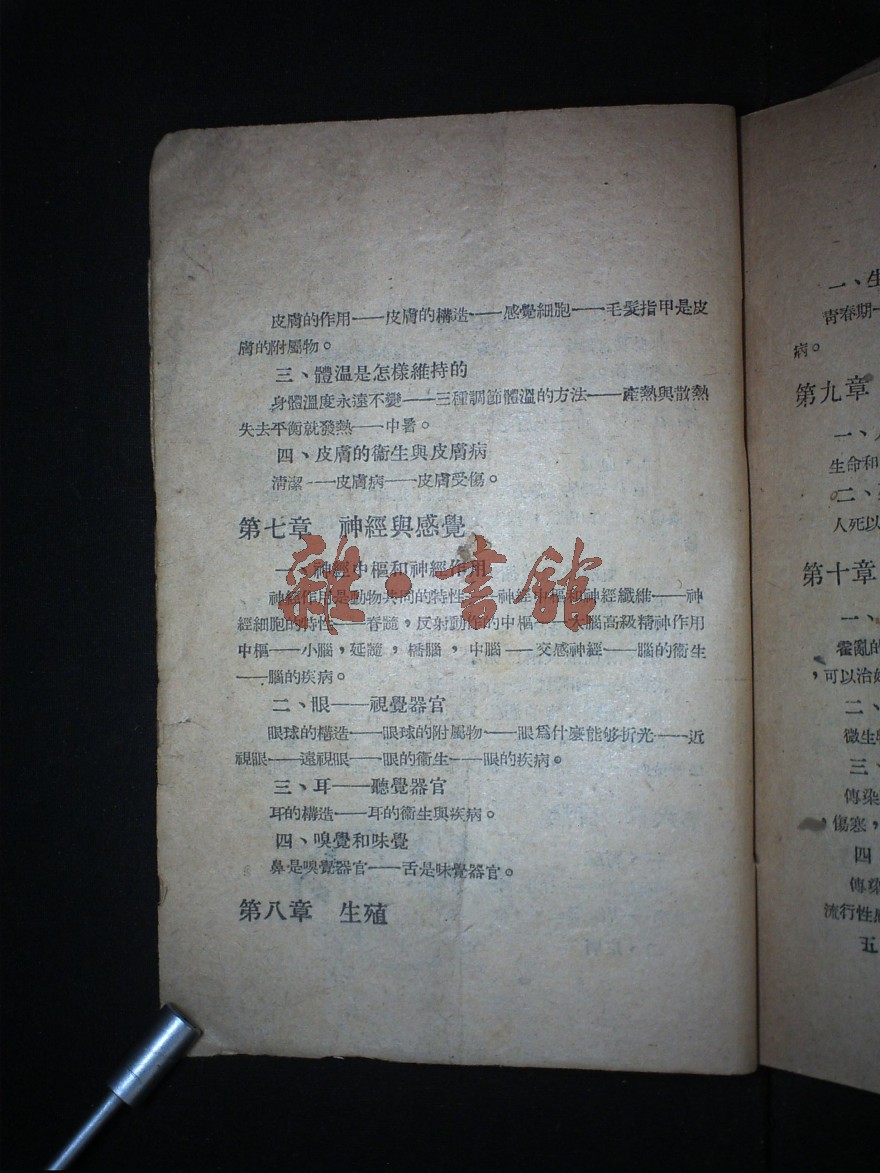 皮膚的作用——皮膚的構造——感覺細胞——毛髮指甲是皮
膚的附屬物。
三、體温是怎樣維持的
身體溫度永遠不變——三種調節體溫的方法——產熱與散熱
失去平衡就發熱——中暑。
四、皮膚的衞生與皮膚病
清潔——皮膚病——皮膚受傷。
第七章 神經與感覺
一、神經中樞和神經作用
神經作用是動物共同的特性——神經中樞和神經纖維——神
經細胞的特性——脊髓,反射動作的中樞——大腦高級精神作用
中樞——小腦,延髓,橋腦,中腦——交感神經——腦的衞生
——腦的疾病。
二、眼——視覺器官
眼球的構造——眼球的附屬物——眼爲什麼能够折光——近
視眼——遠視眼——眼的衞生——眼的疾病。
三、耳——聽覺器官
耳的構造——耳的衞生與疾病。
四、嗅覺和味覺
鼻是嗅覺器官——舌是味覺器官。
第八章 生殖
雜·書館
一、生
青春期
病。
第九章
一、
生命和
二、
人死以
第十章
一、
霍亂的
,可以治
二、
微生
三、
傳染
,傷寒,
四
傳染
流行性
五